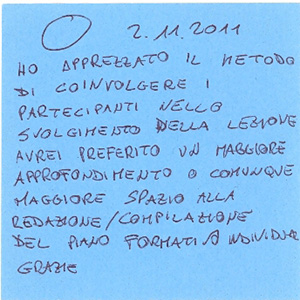 2.11.2011
HO APPREZZATO IL METODO
DI COINVOLGERE I
PARTECIPANTI NELLO
SVOLGIMENTO DELLA LEZIONE
AVREI PREFERITO UN MAGGIORE
APPROFONDIMENTO O COMUNQUE
MAGGIORE SPAZIO ALLA
REDAZIONE/COMPILAZIONE
DEL PIANO FORMATIVO INDIVIDUAL
GRAZIE